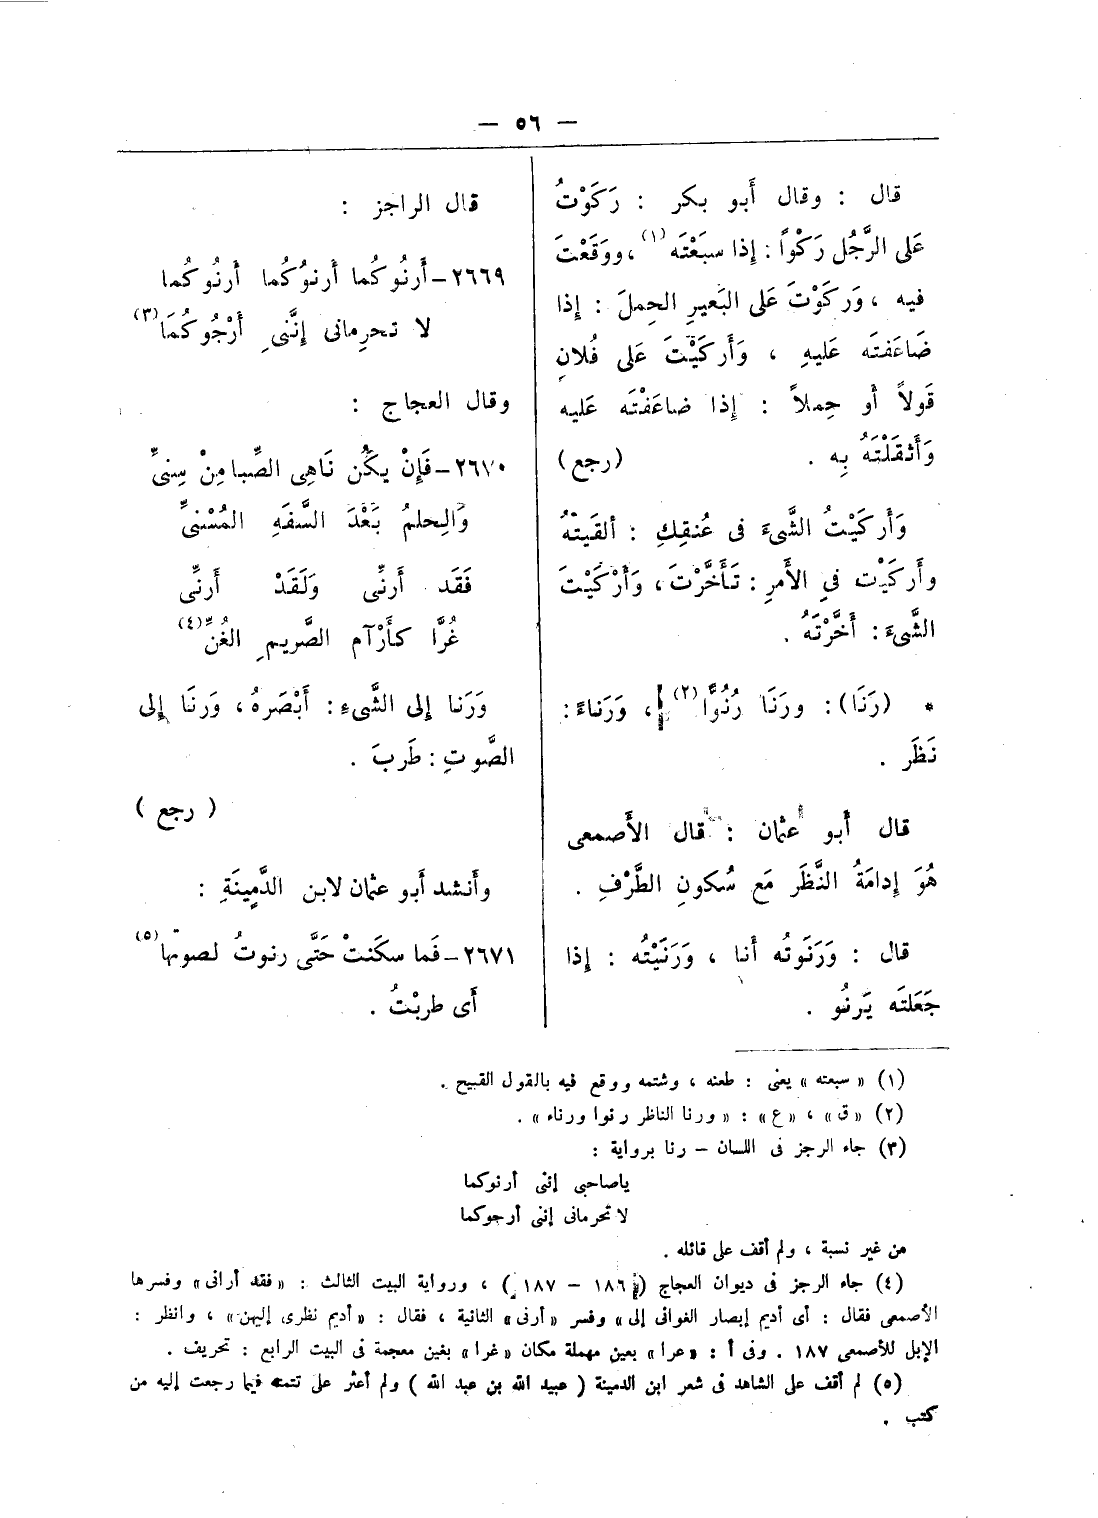 — ٥٦ —
قال : وقال أبو بكر : رَكَوْتُ
عَلى الرَّجُل رَكْواً : إذا سبَعْتَه (١) ، ووَقَعْتَ
فيه ، وَركَوْتَ عَلى البَعيرِ الحِملَ : إذا
ضَاعَفتَه عَليهِ ، وَأَركَيْتَ عَلى فُلانٍ
قَولاً أَو حِملاً : إذا ضاعَفْتَه عَليه
وَأَثقَلْتَهُ بِه . (رجع)
وَأَركَيْتُ الشَّىءَ فى عُنقِكِ : ألقَيتْهُ
وأَركَيْت فىِ الأَمرِ : تَأَخَّرْتَ ، وَأَرْكَيْتَ
الشَّىءَ : أَخَّرْتَهُ .
* (رَنَا) : ورَنَا رُنُوًّا (٢) ، وَرَناءً :
نَظَر .
قال أَبو عثمان : قال الأَصمعى
هُوَ إدامَةُ النَّظَر مَع سُكونِ الطَّرْفِ .
قال : وَرَنَوتُه أَنا ، وَرَنَيْتُه : إذا
جَعَلتَه يَرنُو .
قال الراجز :
٢٦٦٩ – أَرنُوكُما أرنوُكُما أرنُوكُما
لا تحرِمانى إنَّنىِ أَرْجُوكُمَا (٣)
وقال العجاج :
٢٦٧٠ – فَإنْ يكُن نَاهِى الصِّبا مِنْ سِنىِّ
وَالحِلمُ بَعْدَ السَّفَهِ المُسْنىِّ
فَقَد أَرنِّى وَلَقَدْ أَرنِّى
غُرًّا كأَرْآم الصَّريمِ الغُنِّ (٤)
وَرَنا إلى الشَّىءِ : أَبْصَرهُ ، وَرنَا إلى
الصَّوتِ : طَربَ .
( رجع )
وأَنشد أبو عثمان لابن الدُّمِينَةِ :
٢٦٧١ – فَما سكَنتْ حَتَّى رنوتُ لصوتها (٥)
أَى طربْتُ .
(١) « سبعته » يعنى : طعنه ، وشتمه ووقع فيه بالقول القبيح .
(٢) « ق » ، « ع » : « ورنا الناظر رنوا ورناء » .
(٣) جاء الرجز فى اللسان – رنا برواية :
ياصاحبى إننى أرنوكما
لا تحرمانى إننى أرجوكما
من غير نسبة ، ولم أقف على قائله .
(٤) جاء الرجز فى ديوان العجاج (١٨٦ – ١٨٧) ، ورواية البيت الثالث : « فقد أرانى » وفسرها
الأصمعى فقال : أى أديم إبصار الغوانى إلى » وفسر « أرنى » الثانية ، فقال : « أديم نظرى إليهن » ، وانظر :
الإبل للأصمعى ١٨٧ . وفى أ : « عرا » بعين مهملة مكان « غرا » بغين معجمة فى البيت الرابع : تحريف .
(٥) لم أقف على الشاهد فى شعر ابن الدمينة ( عبيد الله بن عبد الله ) ولم أعثر على تتمته فيما رجعت إليه من
كتب .